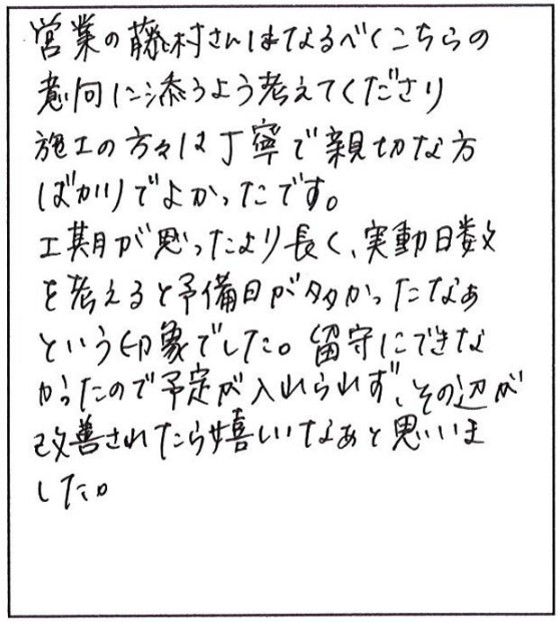 営業の藤村さんはなるべくこちらの
意向に添うよう考えてくださり
施工の方々は丁寧で親切な方
ばかりでよかったです。
工期が思ったより長く、実動日数
を考えると予備日が多かったなぁ
という印象でした。留守にできな
かったので予定が入れられず、その辺が
改善されたら嬉しいなぁと思いま
した。